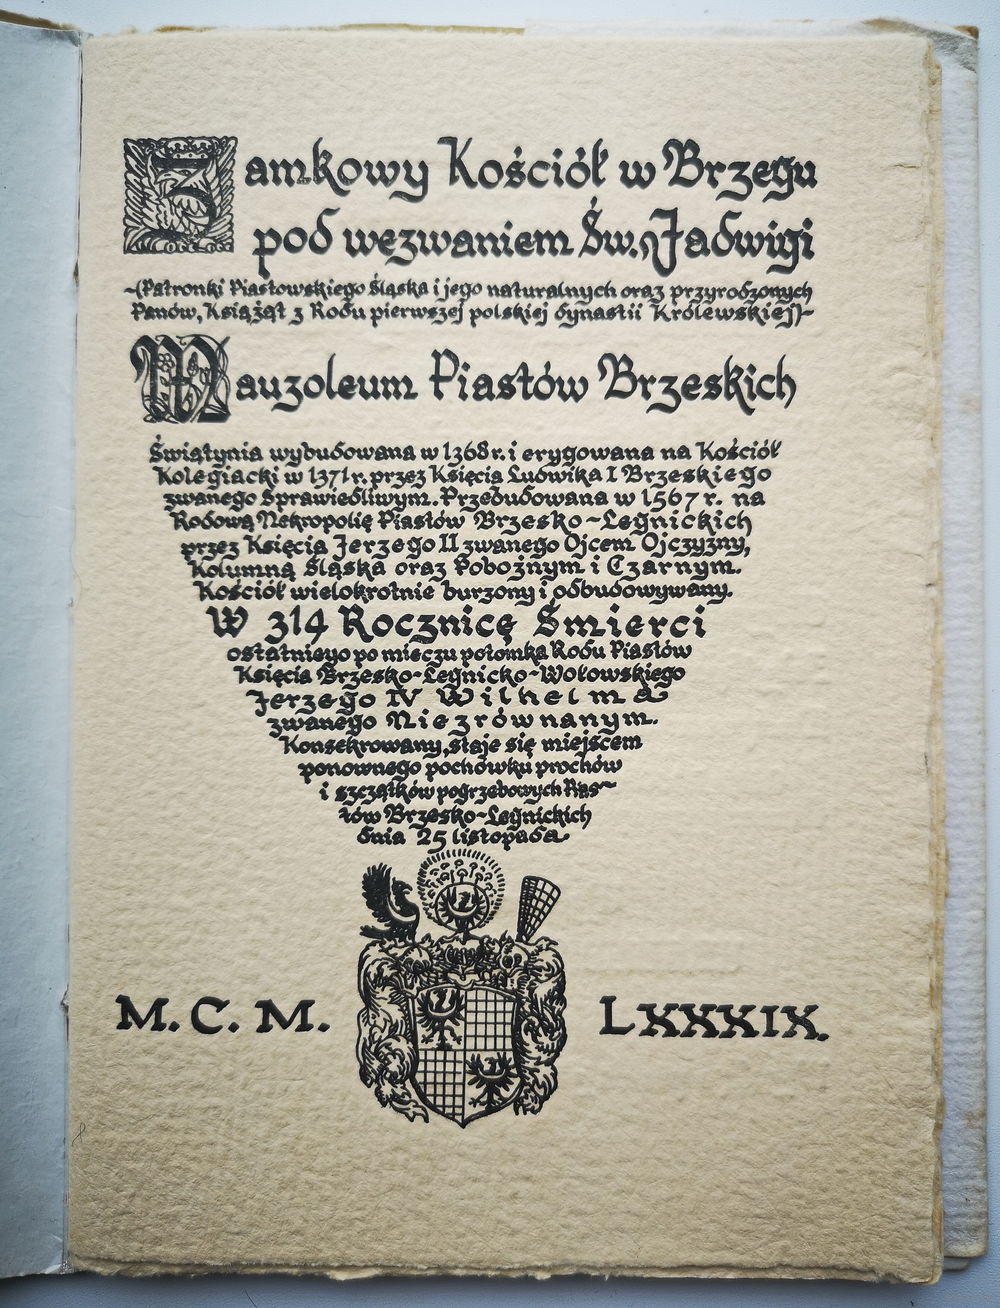 Zamkowy Kościół w Brzegu
pod wezwaniem Św. Jadwigi
(Patronki Piastowskiego Śląska i jego naturalnych oraz przyrodzonych
Panów, Książąt z Rodu pierwszej polskiej dynastii Królewskiej)
Mauzoleum Piastów Brzeskich
Świątynia wybudowana w 1368 r. i erygowana na Kościół
Kolegiacki w 1371 r. przez Księcia Ludwika I Brzeskiego
zwanego Sprawiedliwym. Przebudowana w 1567 r. na
Rodową Nekropolię Piastów Brzesko-Legnickich
przez Księcia Jerzego II zwanego Ojcem Ojczyzny,
Kolumną Śląska oraz Pobożnym i Czarnym.
Kościół wielokrotnie burzony i odbudowywany.
W 314 Rocznicę Śmierci
ostatniego po mieczu potomka Rodu Piastów
Księcia Brzesko-Legnicko-Wołowskiego
Jerzego IV Wilhelma
zwanego Niezrównanym.
Konsekrowany, staje się miejscem
ponownego pochówku prochów
i szczątków pogrzebowych Pias-
tów Brzesko-Legnickich
dnia 25 listopada
M. C. M. LXXXIX.